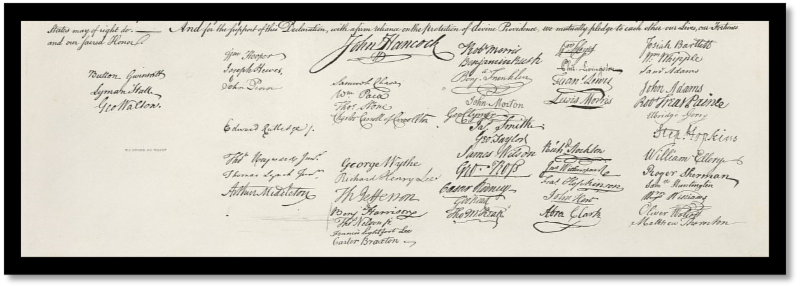 States may of right do. — And for the support of this Declaration, with a firm reliance on the protection of divine Providence, we mutually pledge to each other our Lives, our Fortunes
and our sacred Honor.
Button Gwinnett
Lyman Hall
Geo Walton.
Wm Hooper
Joseph Hewes
John Penn
Edward Rutledge
Thos Heyward Junr.
Thomas Lynch Junr.
Arthur Middleton
John Hancock
Samuel Chase
Wm Paca
Thos Stone
Charles Carroll of Carrollton
George Wythe
Richard Henry Lee
Th Jefferson
Benj Harrison
Thos Nelson jr.
Francis Lightfoot Lee
Carter Braxton
Robt Morris
Benjamin Rush
Benj. Franklin
John Morton
Geo Clymer
Jas. Smith
Geo. Taylor
James Wilson
Geo. Ross
Caesar Rodney
Geo Read
Tho M:Kean
Wm Floyd
Phil. Livingston
Frans. Lewis
Lewis Morris
Richd. Stockton
Jno Witherspoon
Fras. Hopkinson
John Hart
Abra Clark
Josiah Bartlett
Wm Whipple
Saml Adams
John Adams
Robt Treat Paine
Elbridge Gerry
Step. Hopkins
William Ellery
Roger Sherman
Saml Huntington
Wm Williams
Oliver Wolcott
Matthew Thornton